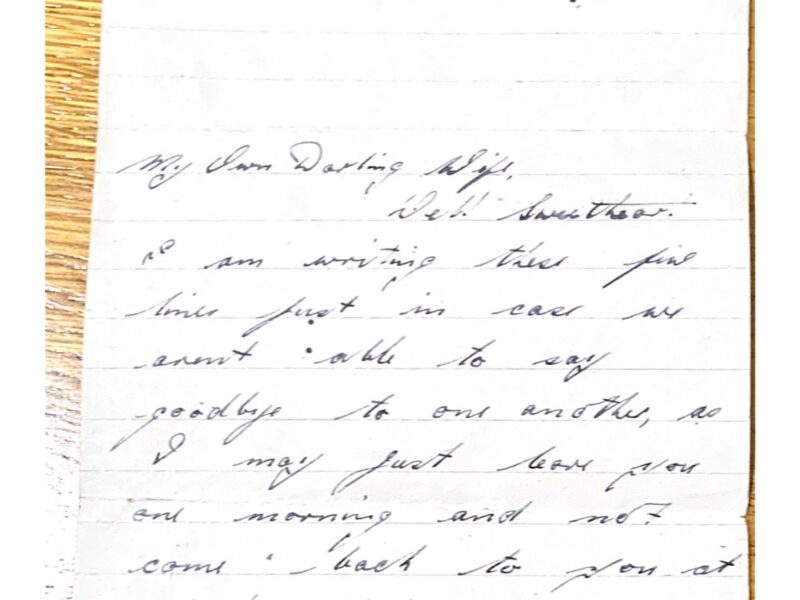 My Own Darling Wife,
Well Sweetheart
I am writing these few
lines just in case we
arent able to say
goodbye to one another, as
I may just leave you
one morning and not
come back to you at